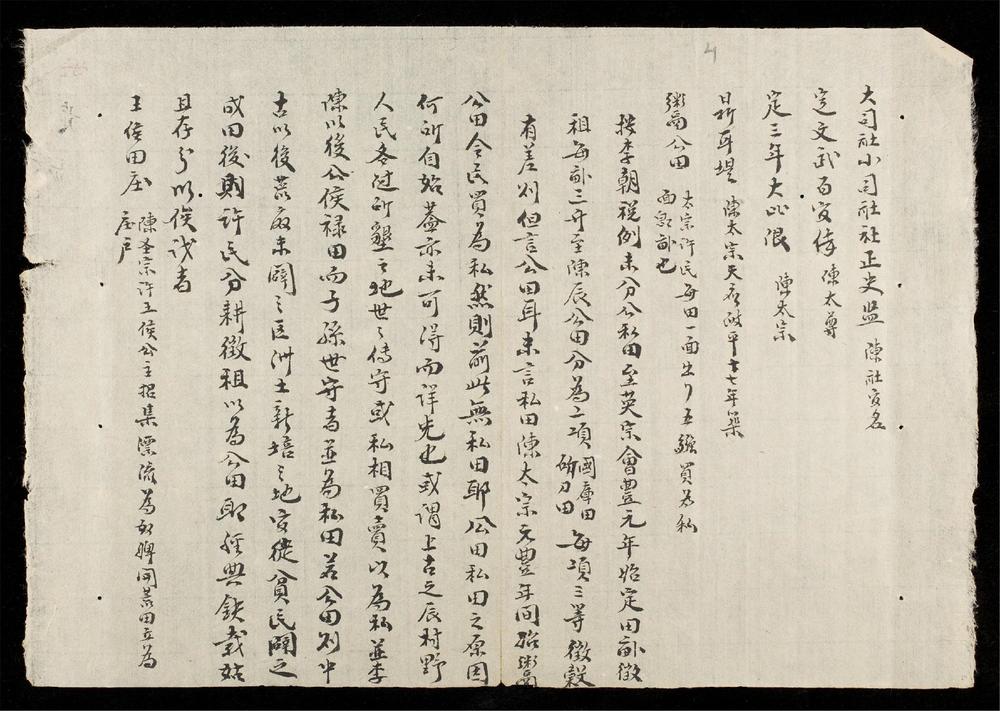 大司社小司社社正史監 陳社官名
定文武百官俸 陳太尊
定三年大比限 陳太宗
日斯耳堤 陳太宗天應政平十七年築
粥公田 太宗許民每田一面出 五鏹買為私
面即畝也
按李朝税例未分公私田至英宗會豊元年始定田畝徵
租每畝三升至陳辰公田分為二項 國庫田 斫刀田 每項三等徵穀
有差别但言公田耳未言私田陳太宗元豊年間始粥
公田令民買為私然則前此無私田耶公田私田之原因
何所自始蓋亦未可得而詳先也或謂上古之辰村野
人民各從所墾之地世々傳守或私相買賣以為私並李
陳以後公侯禄田而子孫世守者並為私田若公田则中
古以後荒廢未闢之區洲土新培之地官徒貧民闢之
成田後則許民分耕徵租以為公田耶經典缺載姑
且存 以俟 者
王侯田庄 陳圣宗許王侯公主招集漂流為奴婢開荒田立為
庄户